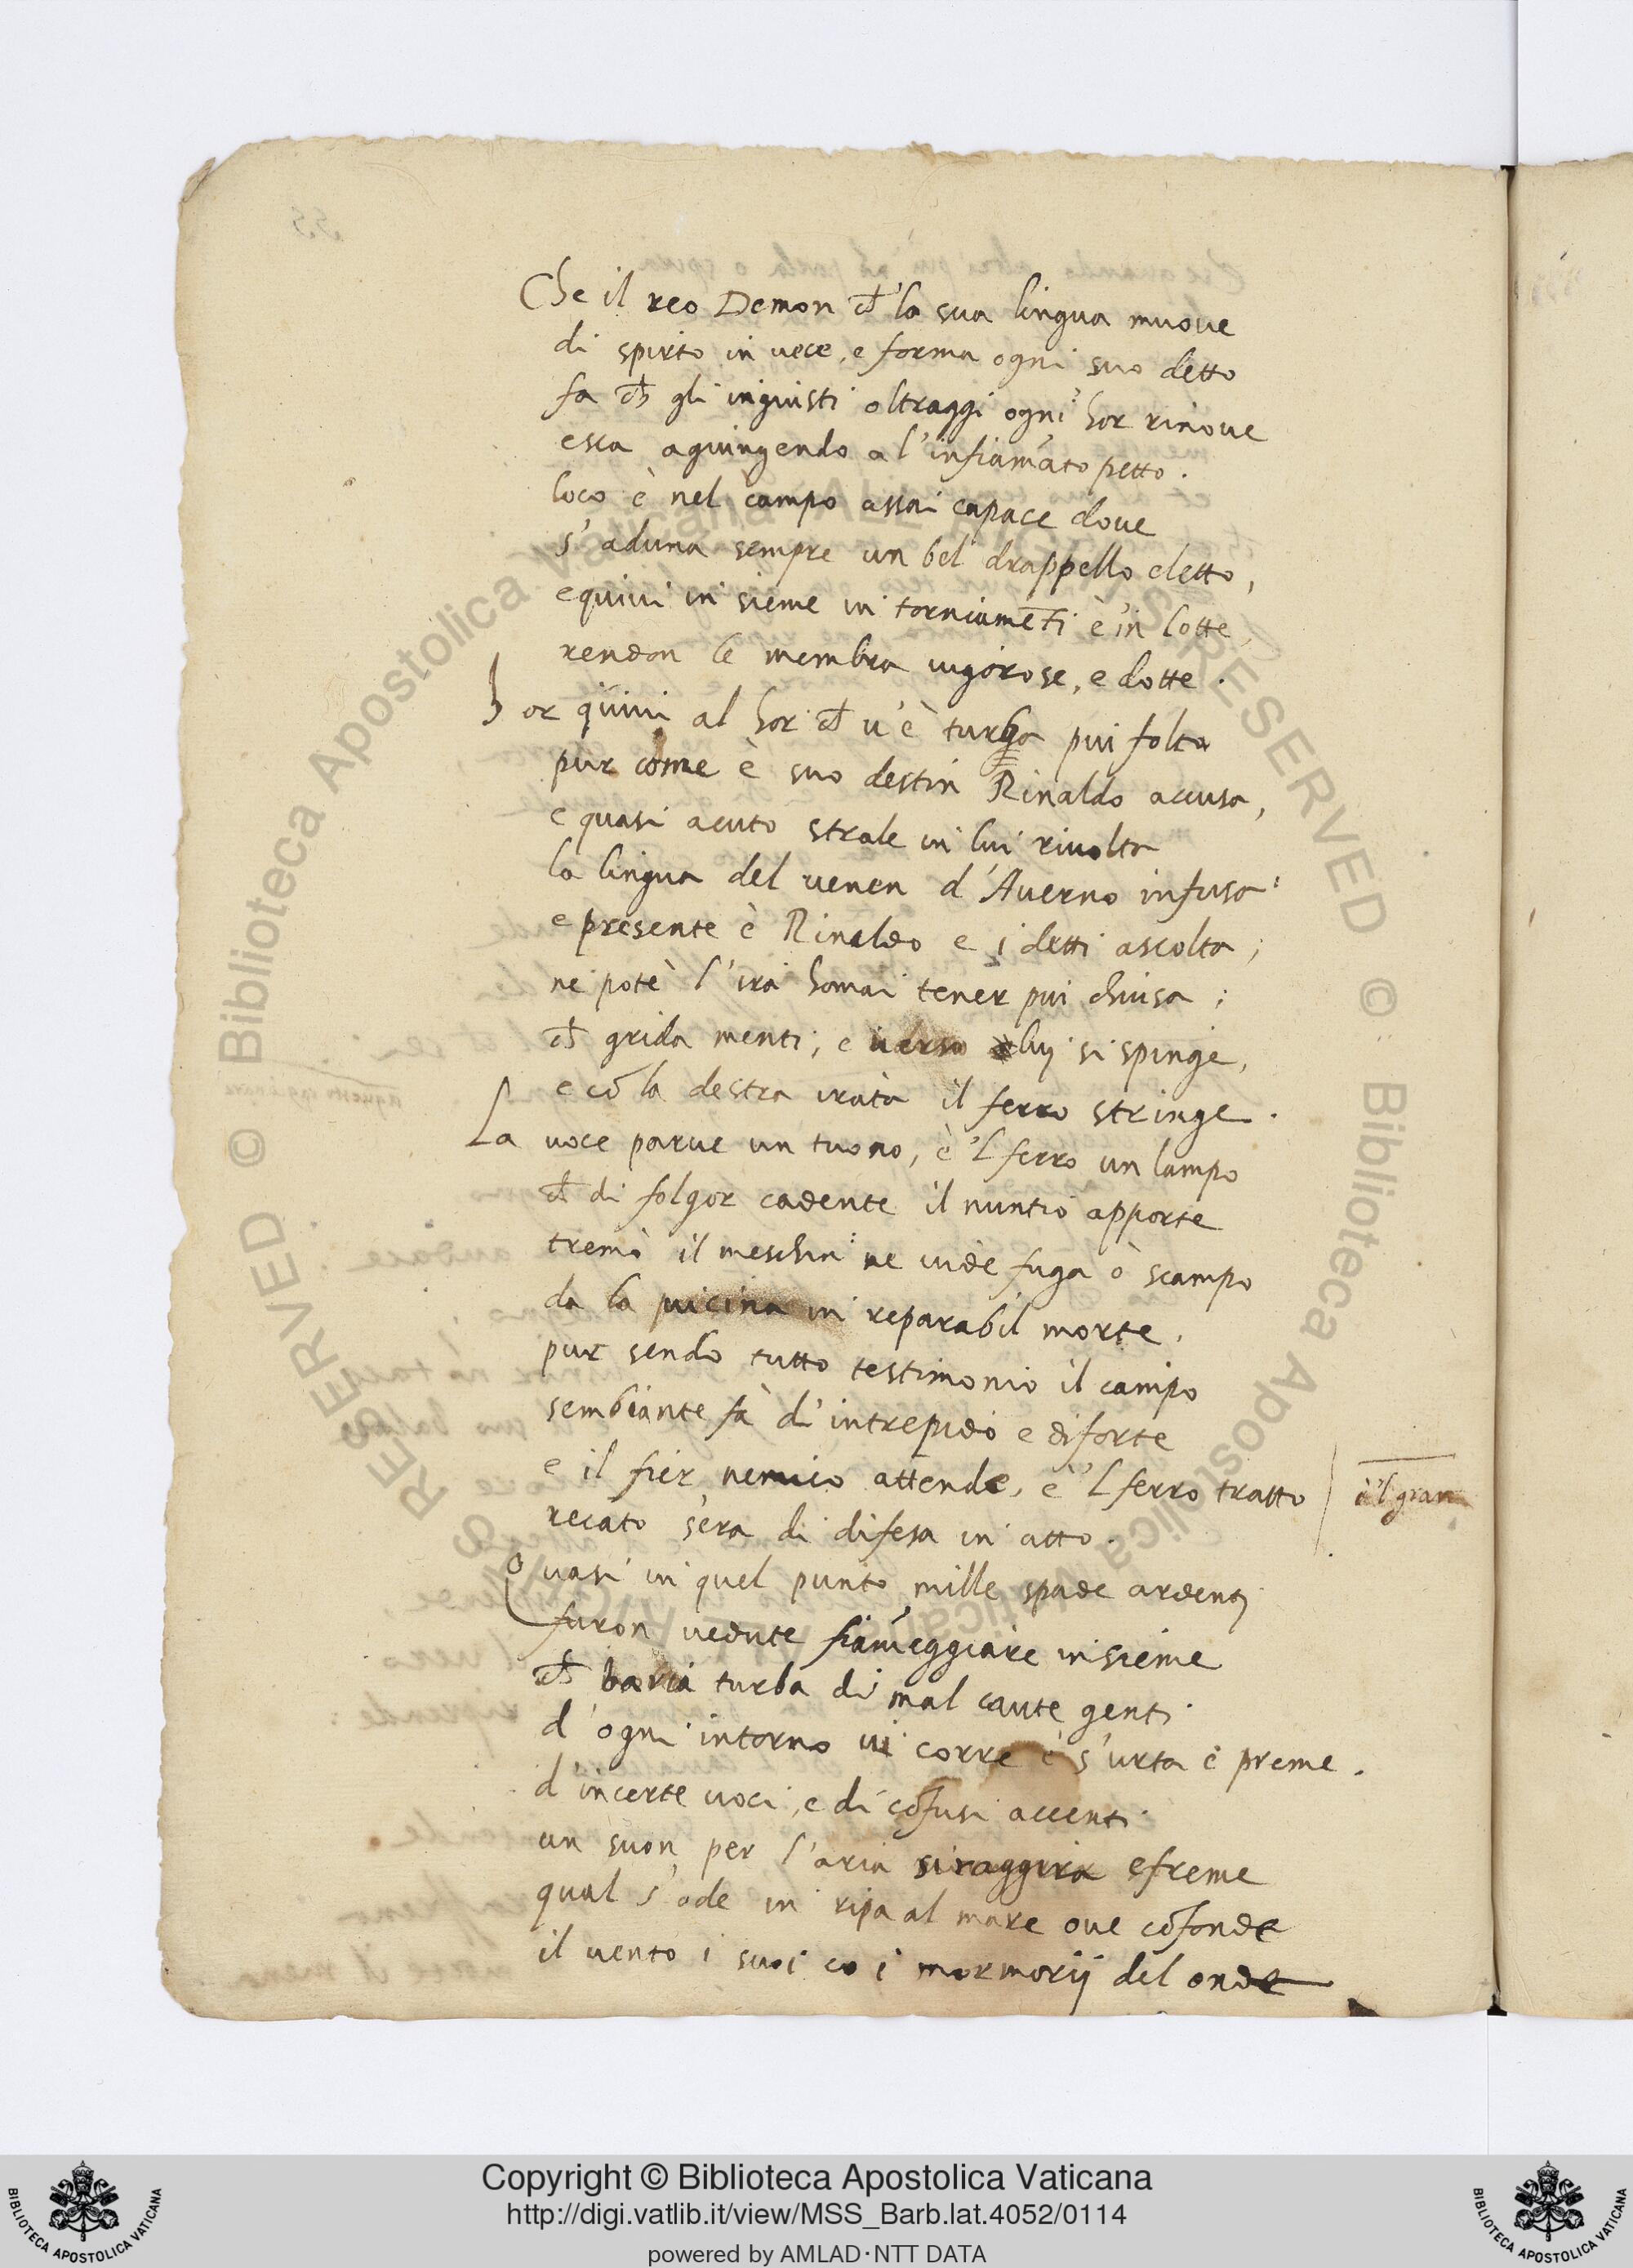 Che il reo Demon ch̄ la sua lingua muove
di spirto in uece, e forma ogni suo detto
fa ch̄ gli ingiusti oltraggi ogni hor rinove
esca agiungendo a l'infiam̄ato petto.
loco è nel campo assai capace dove
s'aduna sempre un bel drappello eletto,
e quivi in sieme in torniamēti è in lotte
rendon le membra vigorose, e dotte.
hor quivi al hor ch̄ v'è turba piu folta
pur come è suo destin Rinaldo accusa,
e quasi acuto strale in lui rivolta
la lingua del venen d'Averno infusa:
e presente è Rinaldo e i detti ascolta,
ne potè l'ira homai tener piu chiusa;
ch̄ grida menti, e verso luy si spinge,
e cō la destra irata il ferro stringe.
La voce parve un tuono, è 'l ferro un lampo
ch̄ di folgor cadente il nuntio apporte
tremò il meschin ne vide fuga ò scampo
da la vicina in reparabil morte.
pur sendo tutto testimonio il campo
sembiante fà d'intrepido e di forte
e il fier nemico attende, è 'l ferro tratto
è 'l gran
recato s'era di difesa in atto.
Quasi in quel punto mille spade ardenti
furon vedute fiam̄eggiare insieme
ch̄ varia turba di mal caute genti
d'ogni intorno vi corre è s'urta è preme.
d'incerte voci, e di cōfusi accenti
un suon per l'aria si raggira e freme
qual s'ode in ripa al mare ove cōfonde
il vento i suoi co i mormorij del onde
Copyright © Biblioteca Apostolica Vaticana
http://digi.vatlib.it/view/MSS_Barb.lat.4052/0114
powered by AMLAD·NTT DATA
BIBLIOTECA APOSTOLICA VATICANA
BIBLIOTECA APOSTOLICA VATICANA